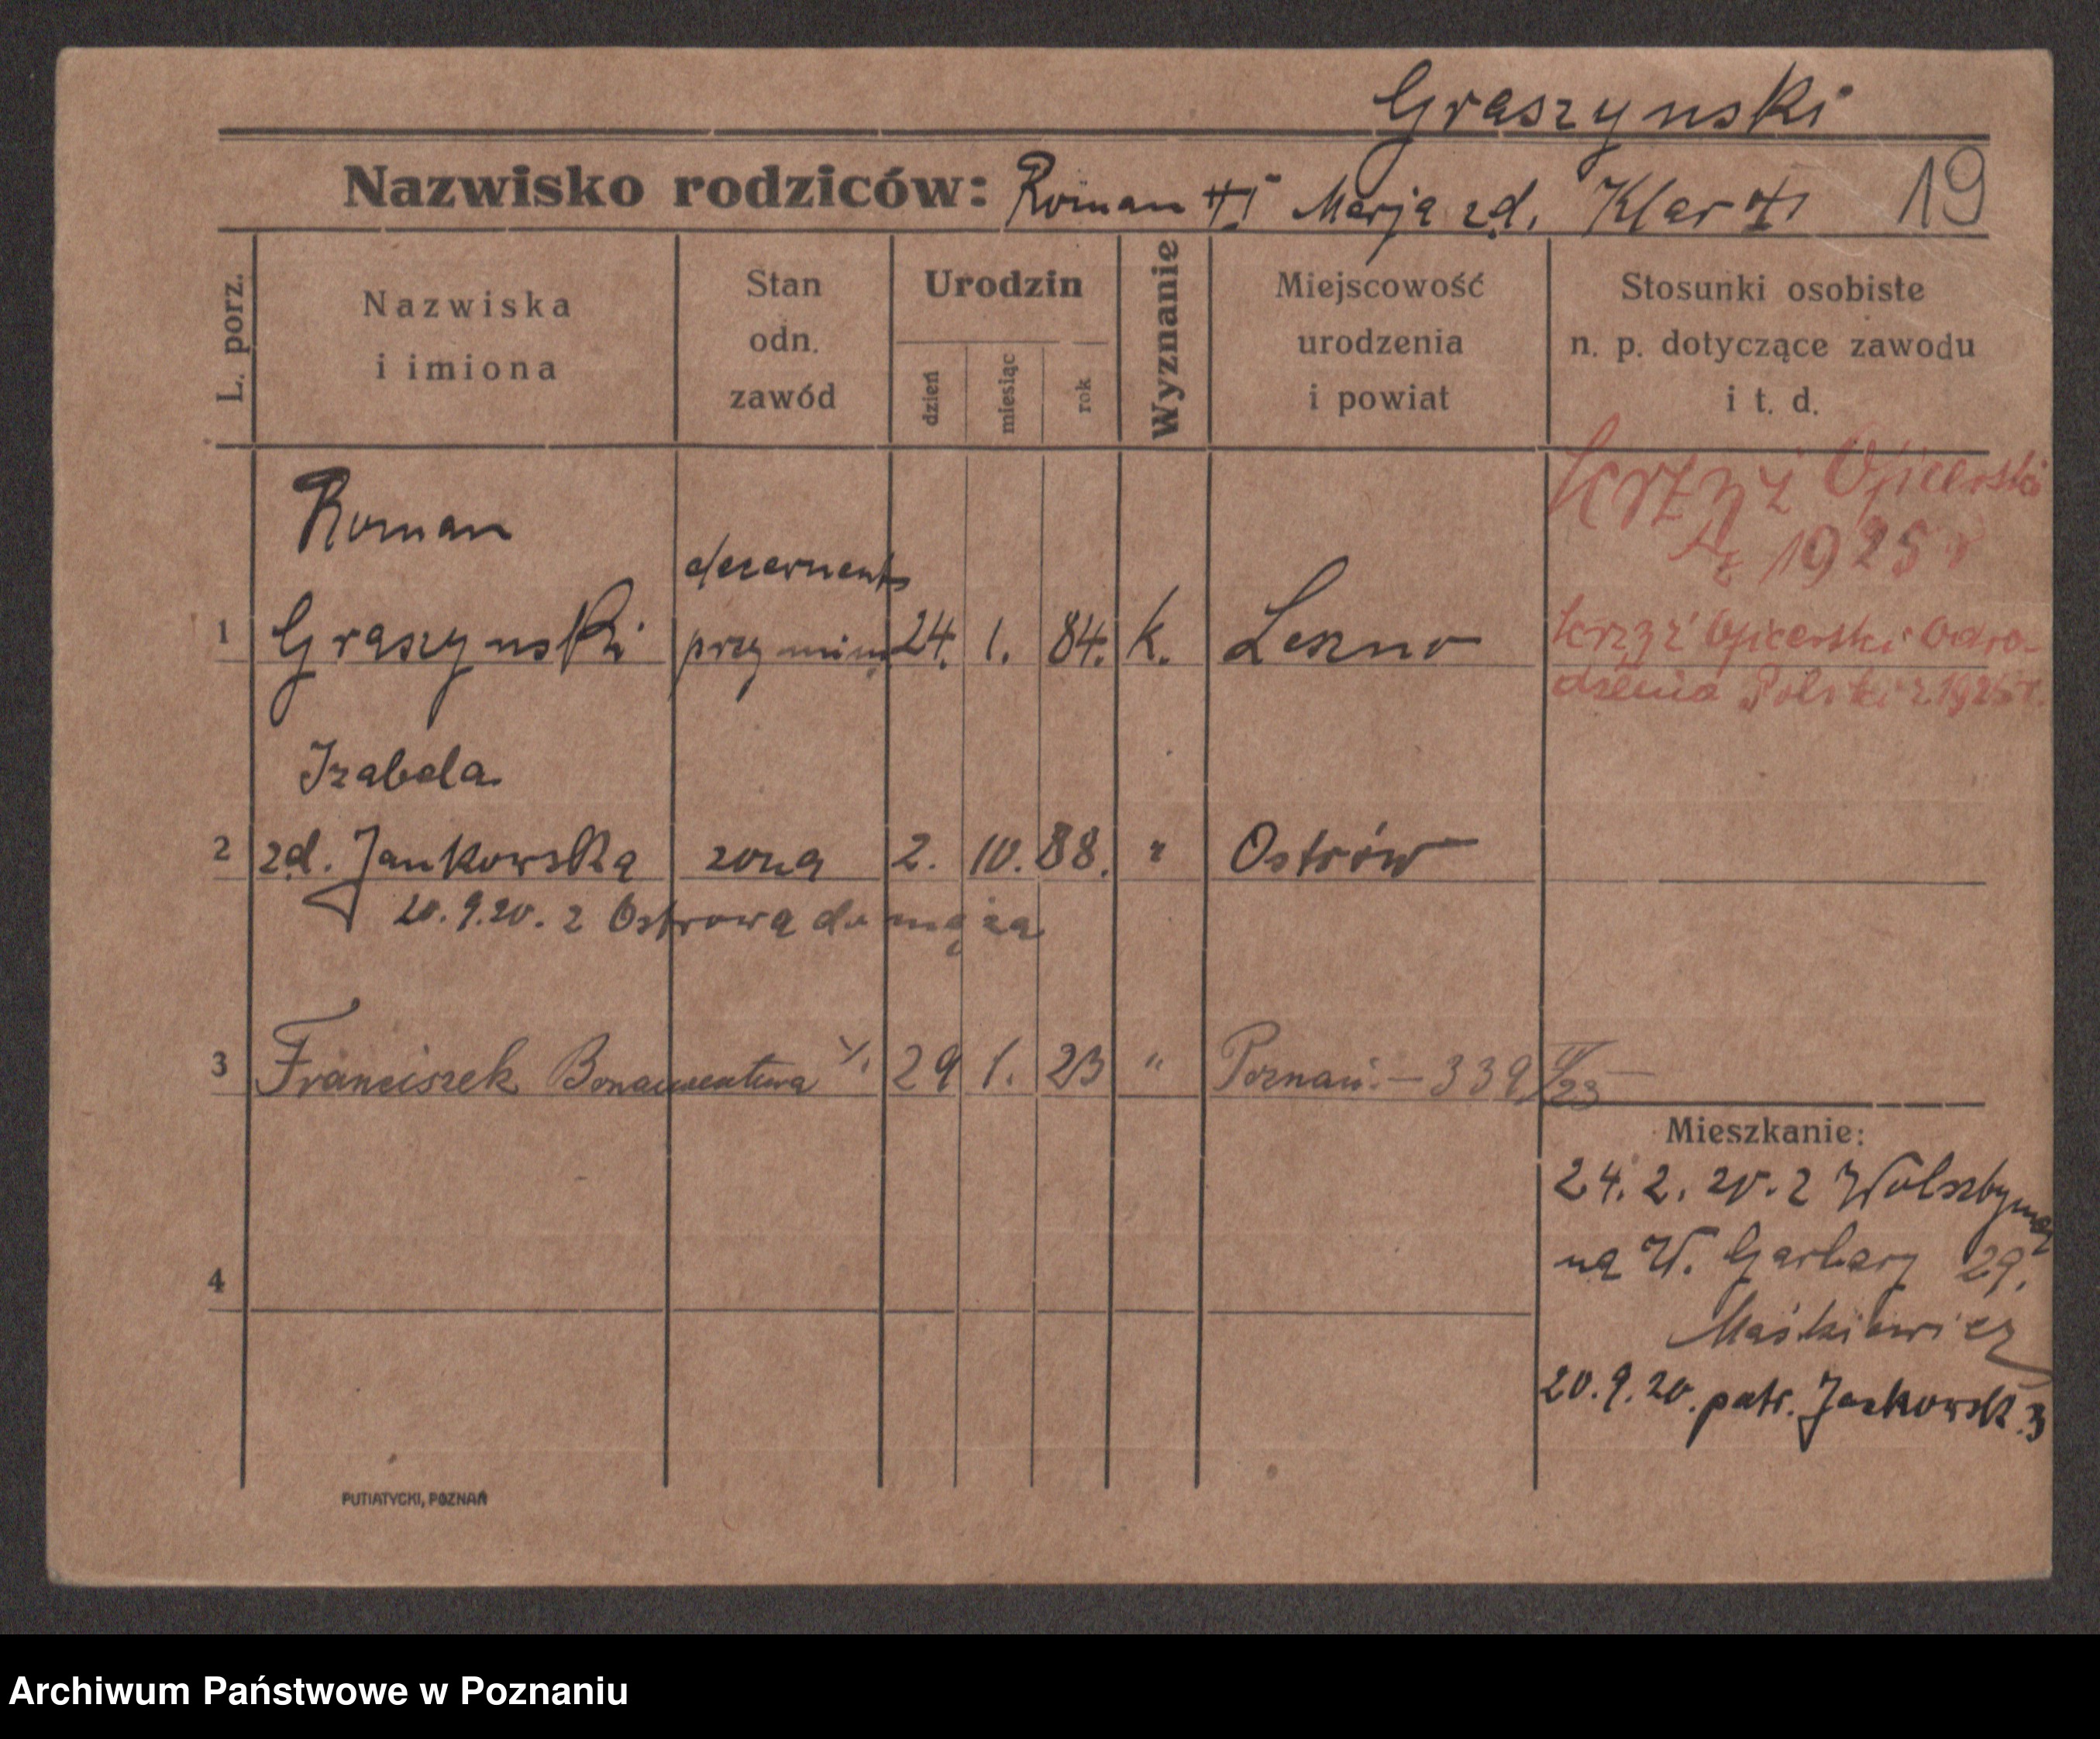 Graszynski
Nazwisko rodziców: Roman Marja zd. Klar 19
L. porz.
Nazwiska
i imiona
Stan
odn.
zawód
Urodzin
dzień
miesiąc
rok
Wyznanie
Miejscowość
urodzenia
i powiat
Stosunki osobiste
n. p. dotyczące zawodu
i t. d.
Krzyż Oficerski
1925 r
Roman
decernent
1 Graszynski przy min. 24. 1. 84. k. Leszno
Krzyż Oficerski Odro-
dzenia Polski z 1925 r.
Izabela
2 zd. Jankowska zona 2. 10. 88. " Ostrów
20.9.20. z Ostrowa do męża
3 Franciszek Bonawentura 29 1. 23 " Poznań. – 339
Mieszkanie:
24. 2. 20. z Wolsztyna
na W. Garbary 29.
Maśkiewicz
20.9.20. patr. Jackowsk. 3
4
PUTIATYCKI, POZNAŃ
Archiwum Państwowe w Poznaniu